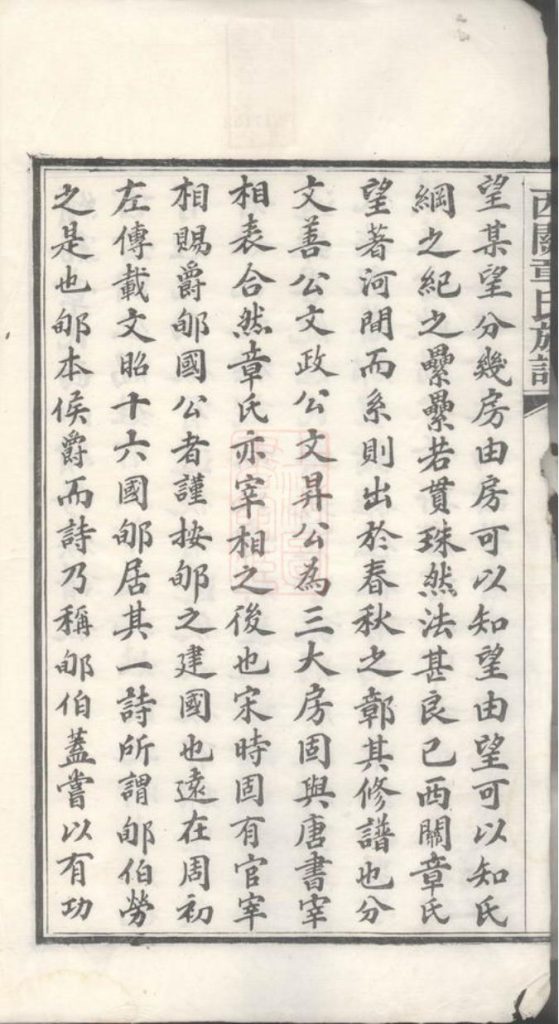 西關章氏族譜
望某望分幾房由房可以知望由望可以知氏
綱之紀之纍纍若貫珠然法甚良已西關章氏
望著河間而系則出於春秋之鄣其修譜也分
文善公文政公文昇公為三大房固與唐書宰
相表合然章氏亦宰相之後也宋時固有官宰
相賜爵郇國公者謹按郇之建國也遠在周初
左傳載文昭十六國郇居其一詩所謂郇伯勞
之是也郇本侯爵而詩乃稱郇伯蓋嘗以有功